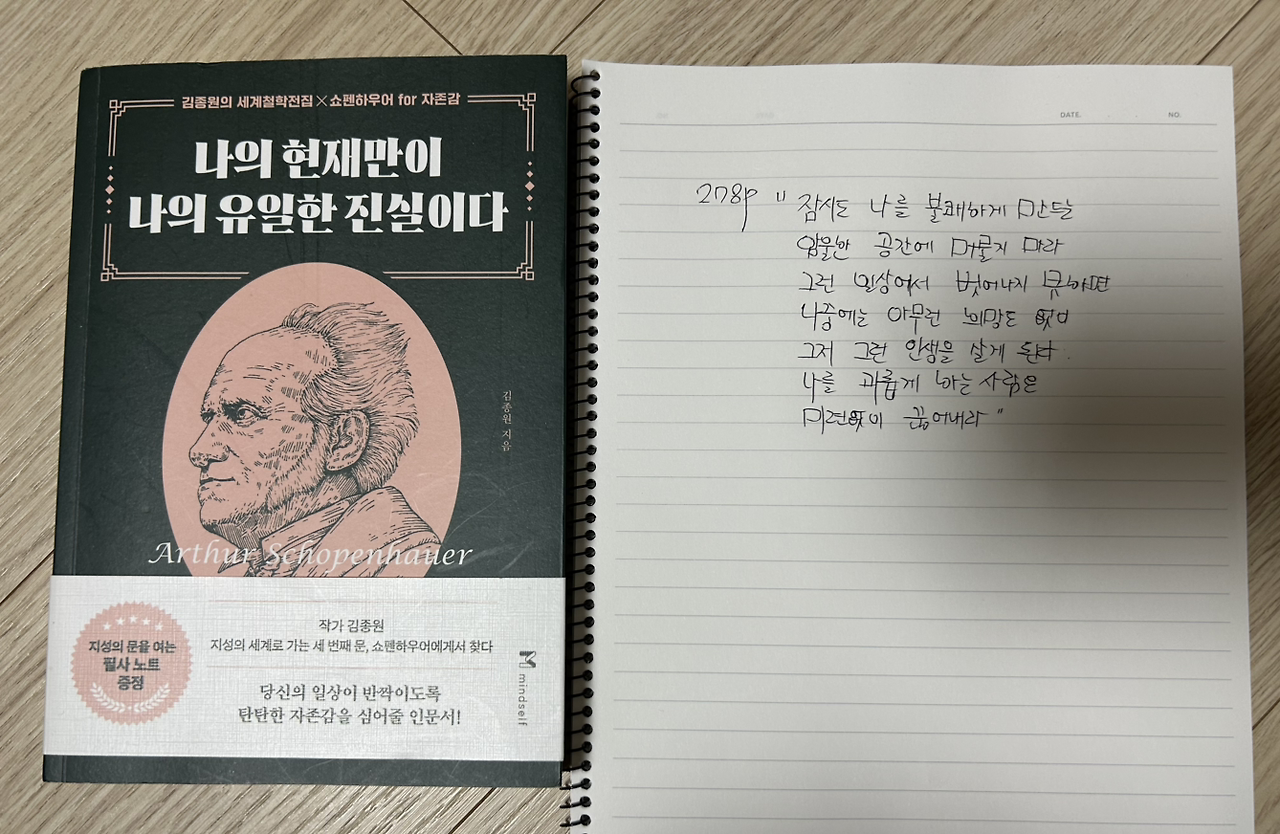 김종원의 세계철학전집×쇼펜하우어 for 자존감
나의 현재만이
나의 유일한 진실이다
김종원 지음
Arthur Schopenhauer
지성의 문을 여는
필사 노트
증정
작가 김종원
지성의 세계로 가는 세 번째 문, 쇼펜하우어에게서 찾다
당신의 일상이 반짝이도록
탄탄한 자존감을 심어줄 인문서!
mindself
DATE. NO.
278p " 잠시도 나를 불쾌하게 만드는
암울한 공간에 머물지 마라
그런 일상에서 벗어나지 못하면
나중에는 아무런 희망도 없이
그저 그런 인생을 살게 된다.
나를 괴롭게 하는 사람은
미련없이 끊어내라"